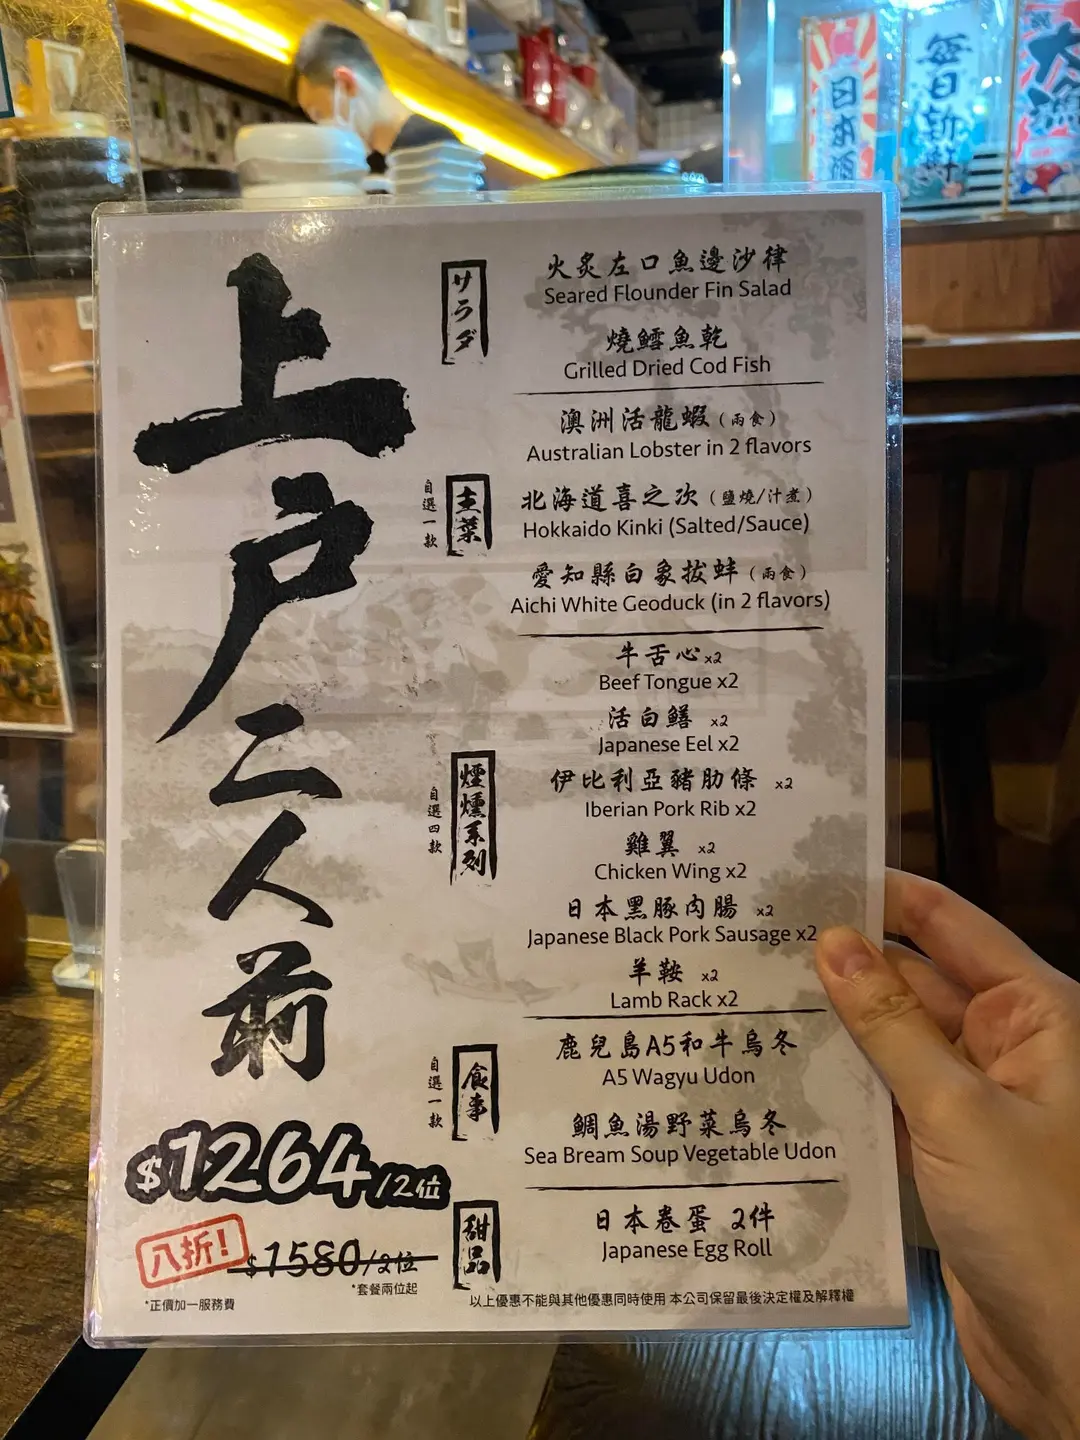 日本酒
每日新鮮
上戶二人前
サラダ
火炙左口魚邊沙律
Seared Flounder Fin Salad
燒鱈魚乾
Grilled Dried Cod Fish
主菜
自選一款
澳洲活龍蝦（兩食）
Australian Lobster in 2 flavors
北海道喜之次（鹽燒/汁煮）
Hokkaido Kinki (Salted/Sauce)
愛知縣白象拔蚌（兩食）
Aichi White Geoduck (in 2 flavors)
煙燻系列
自選四款
牛舌心x2
Beef Tongue x2
活白鱔 x2
Japanese Eel x2
伊比利亞豬肋條 x2
Iberian Pork Rib x2
雞翼 x2
Chicken Wing x2
日本黑豚肉腸 x2
Japanese Black Pork Sausage x2
羊鞍 x2
Lamb Rack x2
食事
自選一款
鹿兒島A5和牛烏冬
A5 Wagyu Udon
鯛魚湯野菜烏冬
Sea Bream Soup Vegetable Udon
甜品
日本卷蛋 2件
Japanese Egg Roll
$1264/2位
八折!
$1580/2位
*套餐兩位起
*正價加一服務費
以上優惠不能與其他優惠同時使用 本公司保留最後決定權及解釋權